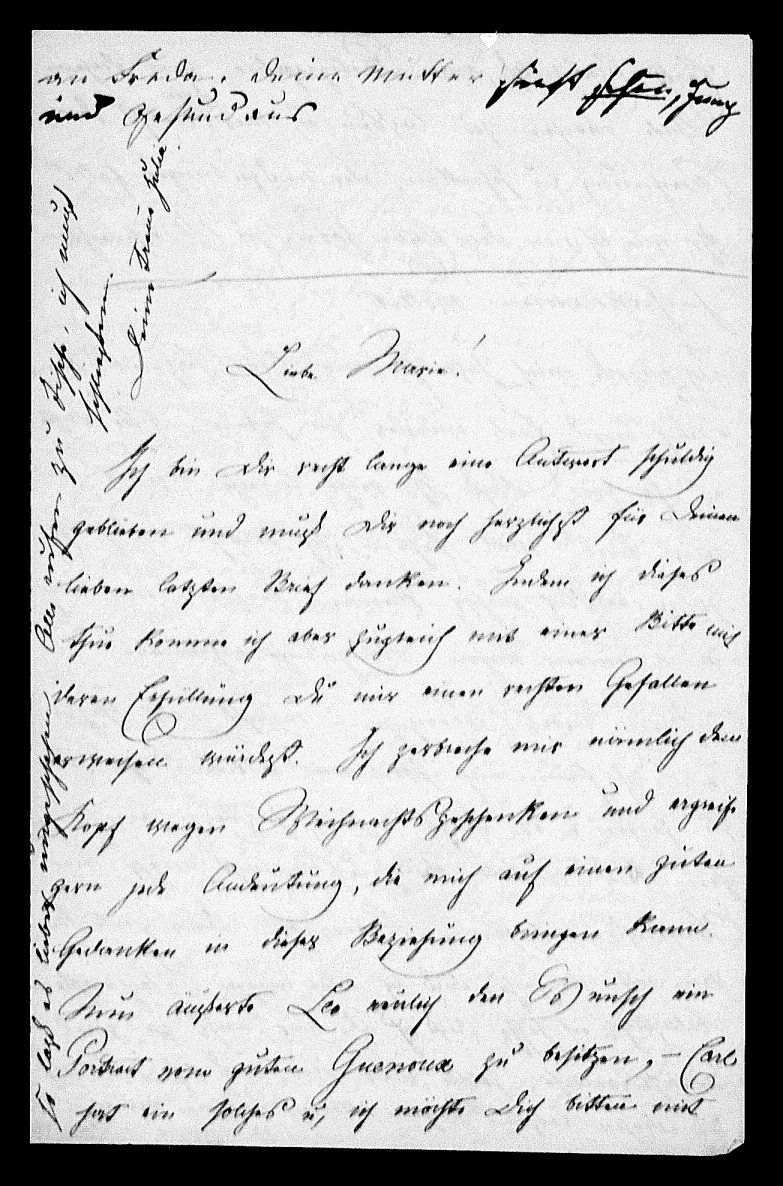 an Frieda. Deine Mutter sieht schon, jung
und gesund aus
Liebe Marie!
Ich bin Dir recht lange eine Antwort schuldig
geblieben und muß Dir noch herzlichst für Deinen
lieben letzten Brief danken. Indem ich dieses
thue komme ich aber zugleich mit einer Bitte mit
deren Erfüllung Du mir einen rechten Gefallen
erweisen würdest. Ich zerbreche mir nämlich den
Kopf wegen Weihnachtsgeschenken und ergreife
gern jede Andeutung, die mich auf einen guten
Gedanken in dieser Beziehung bringen kann.
Nun äußerte Leo neulich den Wunsch ein
Portrait vom guten Guenoux zu besitzen, – Carl
hat ein solches u, ich möchte Dich bitten mit
So laß es lieber ungeschehen. Alle rufen zu Tische, ich muß
schließen.
Deine treue Julia